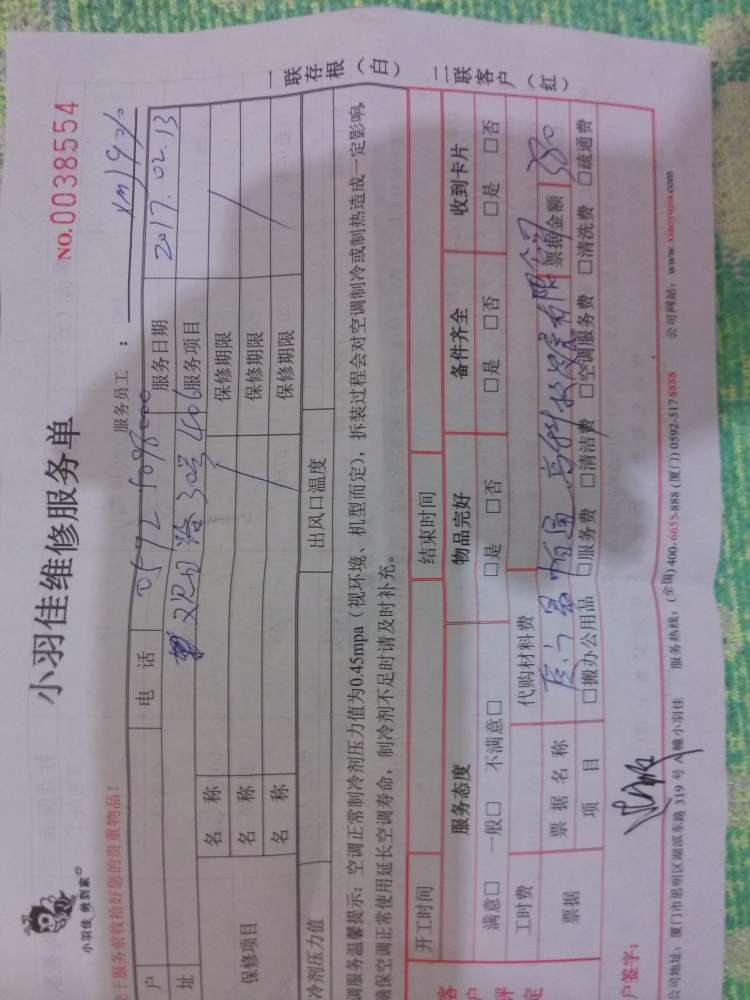 小羽佳 桃到家
小羽佳维修服务单
NO.0038554
于服务前收拾好您的贵重物品!
服务员工:
户 电 话 服务日期 2017.02.13
址 服务项目
保修项目
名 称 保修期限
名 称 保修期限
名 称 保修期限
冷剂压力值 出风口温度
调服务温馨提示:空调正常制冷剂压力值为0.45mpa(视环境、机型而定),拆装过程会对空调制冷或制热造成一定影响,
确保空调正常使用延长空调寿命,制冷剂不足时请及时补充。
一联存根(白) 二联客户(红)
客户评定
开工时间 结束时间
服务态度 物品完好 备件齐全 收到卡片
满意□ 一般□ 不满意□ □是 □否 □是 □否 □是 □否
工时费 代购材料费
票据 票 据 名 称 票据金额 380
项 目 □搬办公用品 □服务费 □清洁费 □空调服务费 □清洗费 □疏通费
户签字:
公司地址:厦门市思明区湖滨东路 319 号 A 幢小羽佳 服务热线:(全国)400-6655-888 (厦门)0592-5178888 公司网站:www.xiaoyujia.com